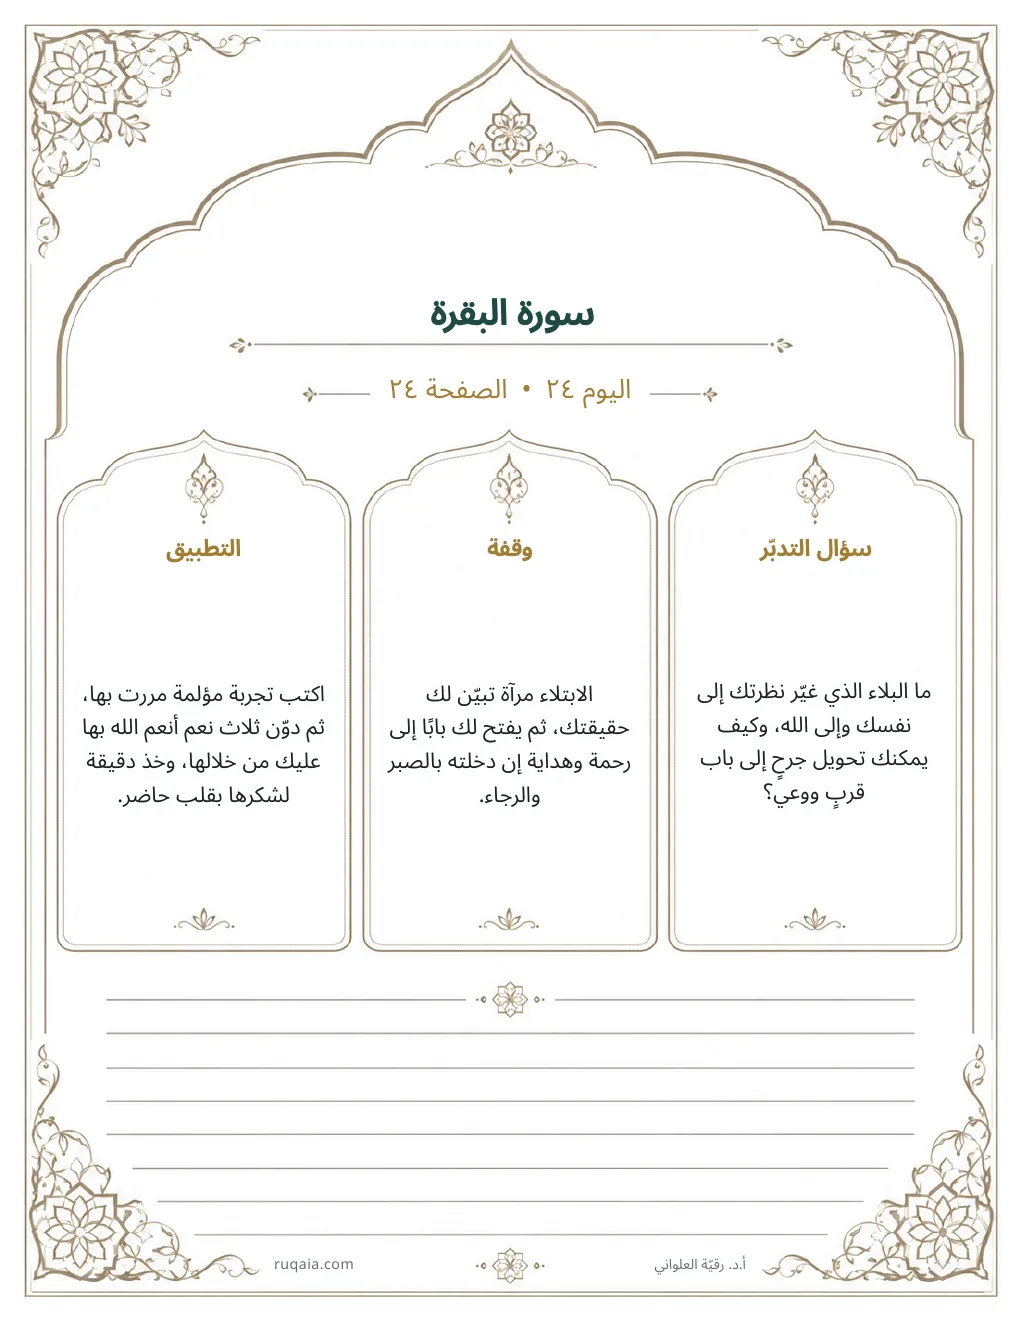 سورة البقرة
اليوم ٢٤ • الصفحة ٢٤
سؤال التدبّر
ما البلاء الذي غيّر نظرتك إلى
نفسك وإلى الله، وكيف
يمكنك تحويل جرحٍ إلى باب
قربٍ ووعي؟
وقفة
الابتلاء مرآة تبيّن لك
حقيقتك، ثم يفتح لك بابًا إلى
رحمة وهداية إن دخلته بالصبر
والرجاء.
التطبيق
اكتب تجربة مؤلمة مررت بها،
ثم دوّن ثلاث نعم أنعم الله بها
عليك من خلالها، وخذ دقيقة
لشكرها بقلب حاضر.
أ.د. رقيّة العلواني
ruqaia.com